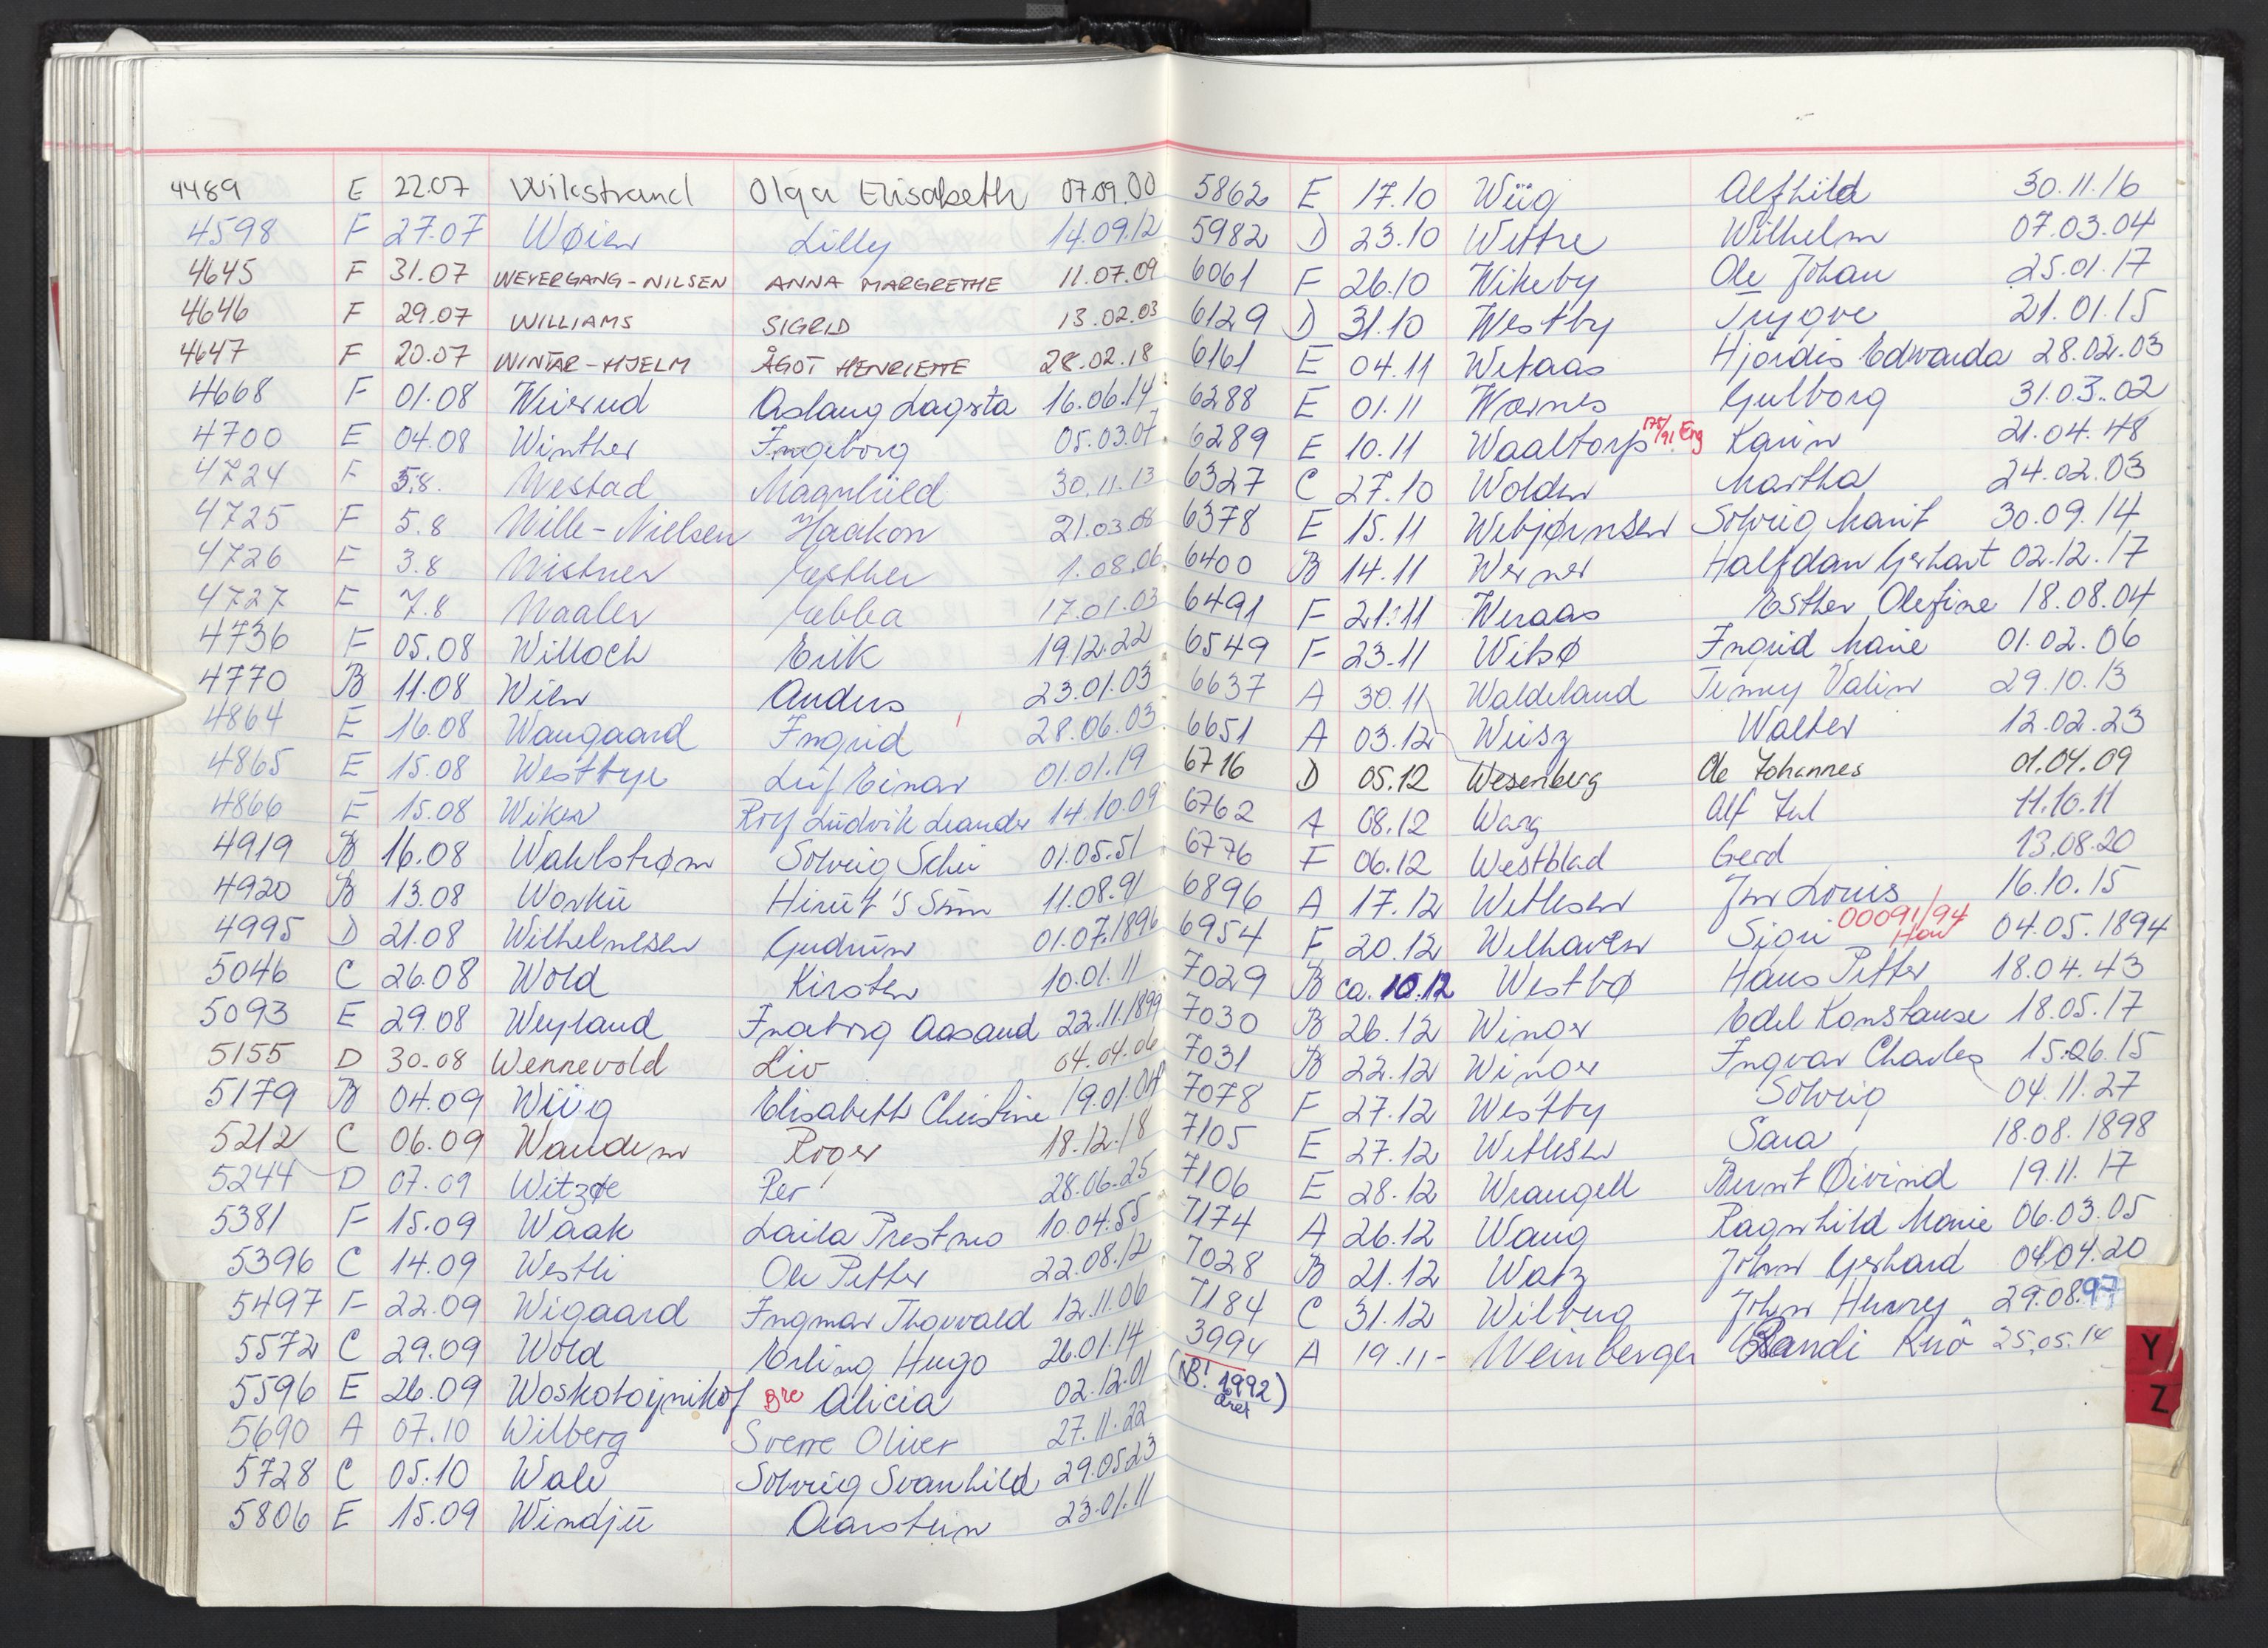 4489 E 22.07 Wikstrand Olga Elisabeth 07.09.00
4598 F 27.07 Wøien Lilly 14.09.12
4645 F 31.07 WEYERGANG-NILSEN ANNA MARGRETHE 11.07.09
4646 F 29.07 WILLIAMS SIGRID 13.02.03
4647 F 20.07 WINTAR-HJELM ÅGOT HENRIETTE 28.02.18
4668 F 01.08 Weierud Aslaug Lagerta 16.06.14
4700 E 04.08 Winther Ingeborg 05.03.07
4724 F 5.8. Westad Magnhild 30.11.13
4725 F 5.8 Wille-Nielsen Haakon 21.03.08
4726 F 3.8 Wistner Esther 1.08.06
4727 F 7.8 Waaler Ebba 17.01.03
4736 F 05.08 Willoch Erik 19.12.22
4770 B 11.08 Wien Anders 23.01.03
4864 E 16.08 Wangaard Ingrid 28.06.03
4865 E 15.08 Westbye Leif Einar 01.01.19
4866 E 15.08 Wiken Rolf Ludvik Leander 14.10.09
4919 B 16.08 Wahlstrøm Solveig Schei 01.05.51
4920 B 13.08 Worku Hirut 'S Sønn 11.08.91
4995 D 21.08 Wilhelmsen Gudrun 01.07.1896
5046 C 26.08 Wold Kirsten 10.01.11
5093 E 29.08 Weyland Ingeborg Aasand 22.11.1899
5155 D 30.08 Wennevold Liv 04.04.06
5179 B 04.09 Wiig Elisabeth Christine 19.01.04
5212 C 06.09 Wandem Roger 18.12.18
5244 D 07.09 Witzøe Per 28.06.25
5381 F 15.09 Waak Laila Prestmo 10.04.55
5396 C 14.09 Westli Ole Petter 22.08.12
5497 F 22.09 Wigaard Ingmar Thorvald 12.11.06
5572 C 29.09 Wold Erling Hugo 26.01.14
5596 E 26.09 Woskoboijnikof Bre Alicia 02.12.01
5690 A 07.10 Wilberg Sverre Oliver 27.11.22
5728 C 05.10 Wale Solveig Svanhild 29.05.23
5806 E 15.09 Windju Aarstein 23.01.11
5862 E 17.10 Wiig Alfhild 30.11.16
5982 D 23.10 Wettre Wilhelm 07.03.04
6061 F 26.10 Wikeby Ole Johan 25.01.17
6129 D 31.10 Westby Trygve 21.01.15
6161 E 04.11 Wetaas Hjørdis Edwarda 28.02.03
6288 E 01.11 Wærnes Gulborg 31.03.02
6289 E 10.11 Waaltorp 175/91 Erg Karin 21.04.48
6327 C 27.10 Wolden Martha 24.02.03
6378 E 15.11 Webjørnsen Solveig Marit 30.09.14
6400 B 14.11 Werner Halfdan Gerhart 02.12.17
6491 F 21.11 Weraas Esther Olefine 18.08.04
6549 F 23.11 Wibsø Ingrid Marie 01.02.06
6637 A 30.11 Waldeland Jenny Valin 29.10.13
6651 A 03.12 Weisz Walter 12.02.23
6716 D 05.12 Wesenberg Ole Johannes 01.04.09
6762 A 08.12 Warg Alf Jul 11.10.11
6776 F 06.12 Westblad Gerd 13.08.20
6896 A 17.12 Wetlesen Jens Louis 16.10.15
6954 F 20.12 Welhaven Sigri 00091/94 Hort 04.05.1894
7029 B ca. 10.12 Westbø Hans Petter 18.04.43
7030 B 26.12 Winger Edel Konstanse 18.05.17
7031 B 22.12 Winger Ingvar Charles 15.06.15
7078 F 27.12 Westby Solveig 04.11.27
7105 E 27.12 Wetlesen Sara 18.08.1898
7106 E 28.12 Wrangell Bernt Øivind 19.11.17
7174 A 26.12 Waug Ragnhild Marie 06.03.05
7028 B 21.12 Watz John Gerhard 04.04.20
7184 C 31.12 Wilberg John Henry 29.08.97
3994 A 19.11- Weinberger Randi Knö 25.05.14
(NB! 1992)
året
Y
Z